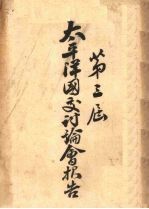 第三屆
太平洋國交討論會報告